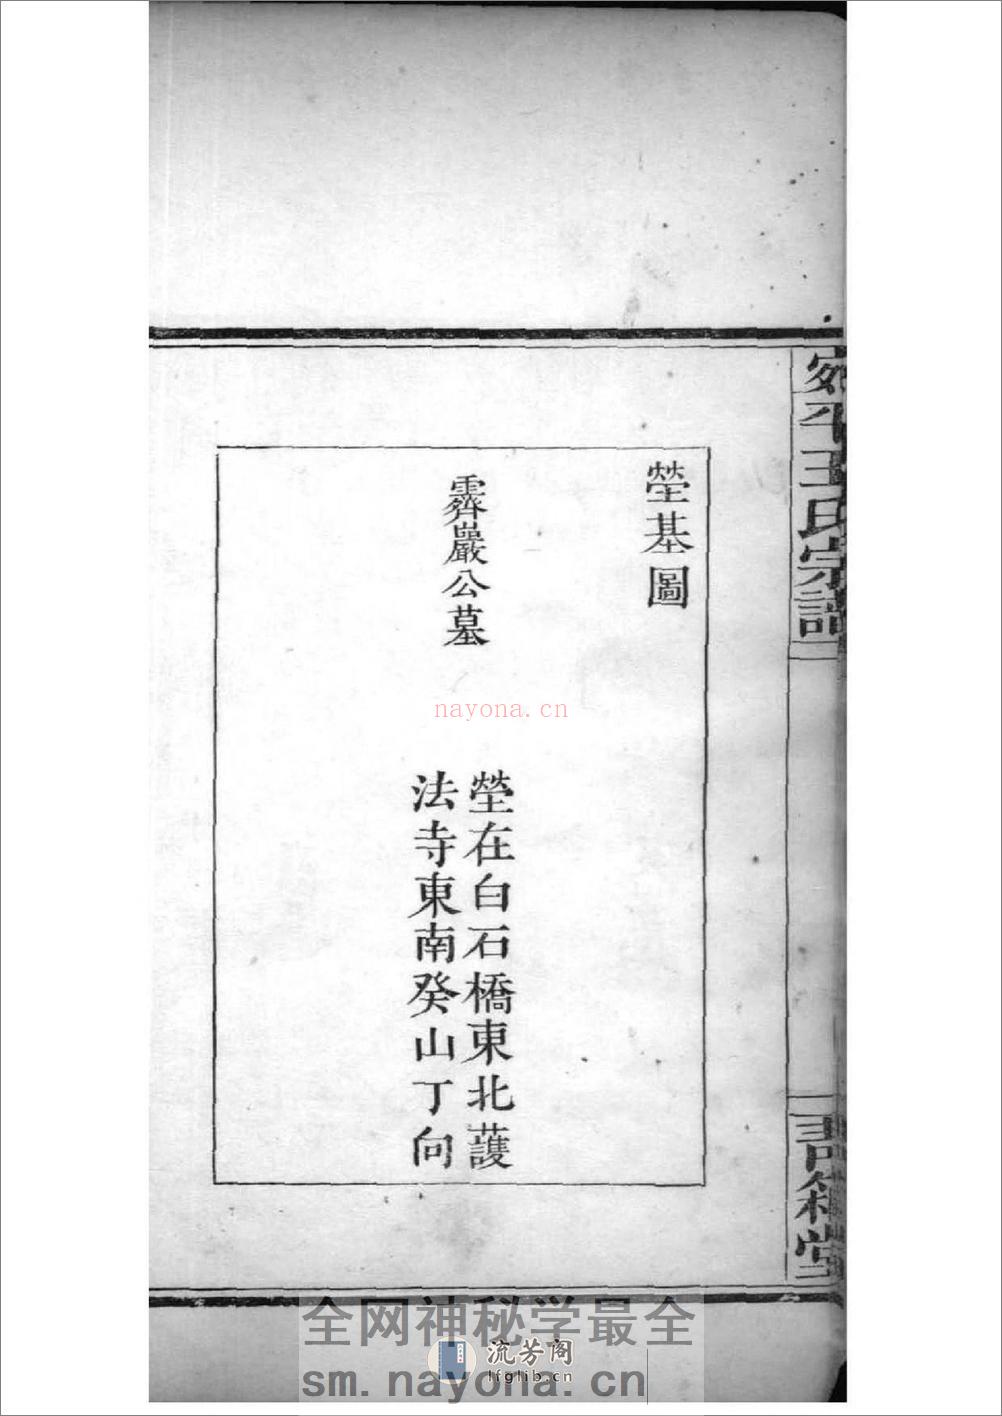 宛平王氏宗譜
塋基圖
霽巖公墓
塋在白石橋東北護
法寺東南癸山丁向
nayona.cn
全网神秘学最全
流芳阁
lfglib.cn
sm.nayona.cn